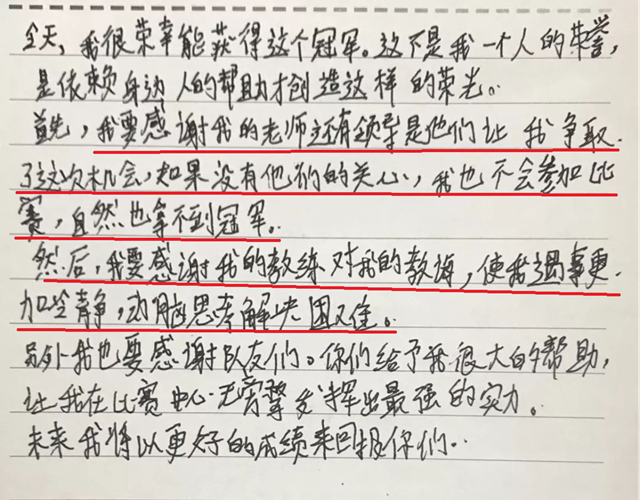 今天，我很荣幸能获得这个冠军。这不是我一个人的荣誉，
是依赖身边人的帮助才创造这样的荣光。
首先，我要感谢我的老师还有领导是他们让我争取
了这次机会，如果没有他们的关心，我也不会参加比
赛，自然也拿不到冠军。
然后，我要感谢我的教练对我的教诲，使我遇事更
加冷静，动脑思考解决困难。
另外我也要感谢队友们。你们给予我很大的帮助，
让我在比赛中心无旁骛发挥出最强的实力。
未来我将以更好的成绩来回报你们。